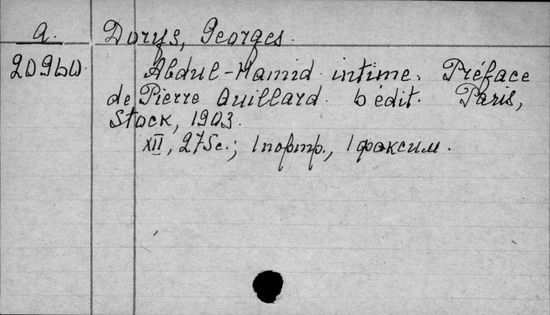 a. Dorys, Georges.
20960. Abdul-Hamid intime. Préface
de Pierre Quillard. 6 édit. Paris,
Stock, 1903.
XII, 275 с.; 1 портр., 1 факсим.